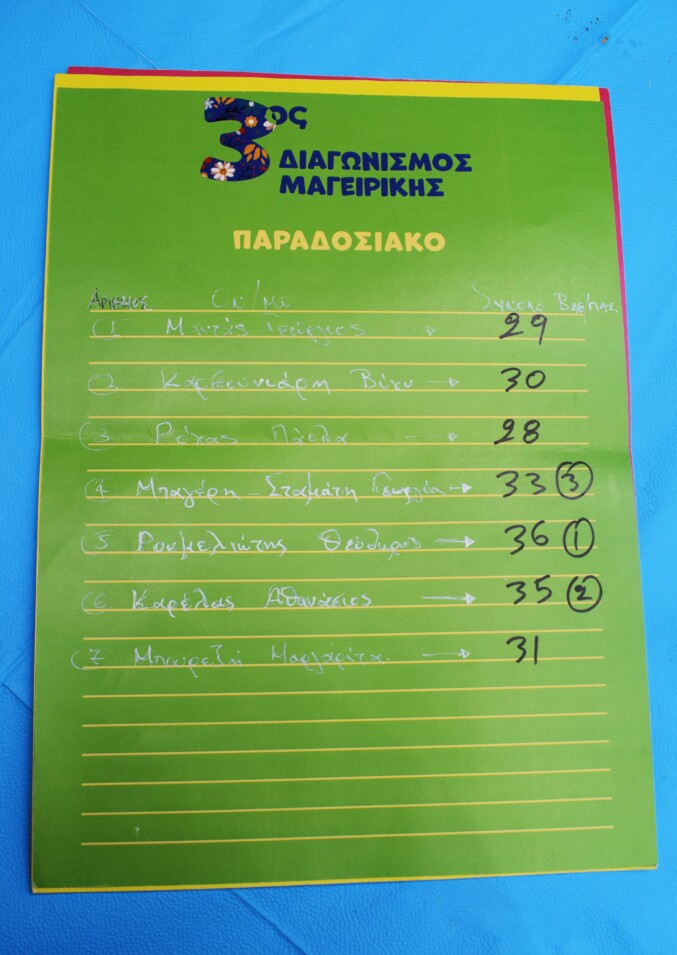 3ος
ΔΙΑΓΩΝΙΣΜΟΣ
ΜΑΓΕΙΡΙΚΗΣ
ΠΑΡΑΔΟΣΙΑΚΟ
Αριθμος Ον/μο
1 Γεώργιος → 29
2 Βίκυ → 30
3 → 28
4 Μπαγέρη - Σταμάτη Γεωργία → 33 3
5 Ρουμελιώτης Θεόδωρος → 36 1
6 Καρέλας Αθανάσιος → 35 2
7 Μαργαρίτα → 31